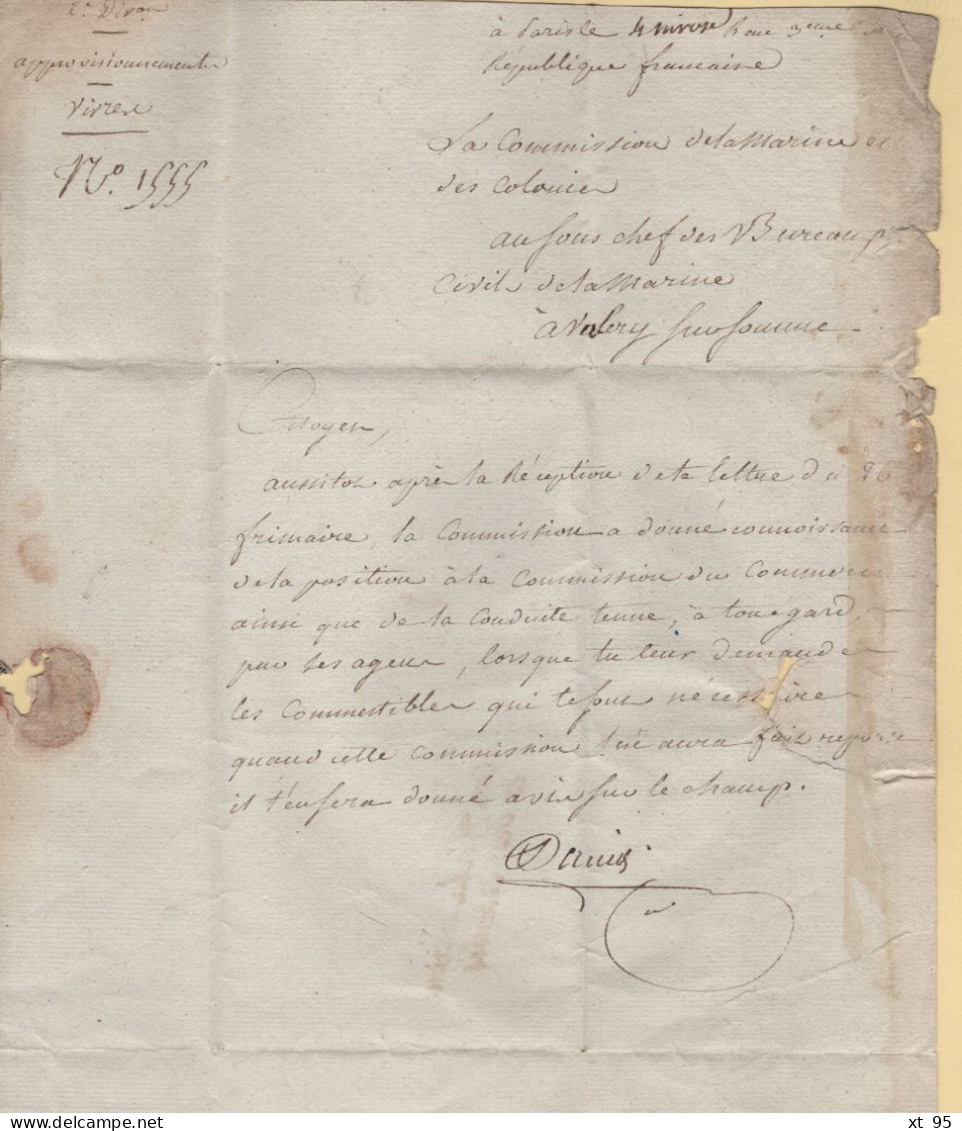 2e. Divon
approvisionnements
Vivres
No. 1555
à Paris le 4 nivose l'an 3eme de la
République francaise
La Commission de la Marine et
des Colonies
au sous chef des Bureaux
Civils de la Marine
à Valery sur Somme.
Citoyen,
aussitot après la Réception de ta lettre du 26
frimaire, la Commission a donné connoissance
de ta position à la Commission du Commerce
ainsi que de la Conduite tenue, à ton égard,
par ses agens, lorsque tu leur demandes
les Commestibles qui te sont nécessaires
quand cette Commission lui aura fait reponse
il t'en sera donné avis sur le champ.
xt 95